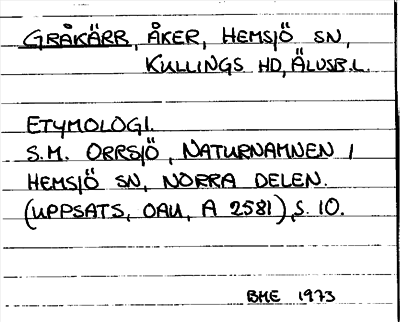 GRÅKÄRR, ÅKER, HEMSJÖ SN,
KULLINGS HD, ÄLVSB.L.
ETYMOLOGI.
S.M. ORRSJÖ, NATURNAMNEN I
HEMSJÖ SN, NORRA DELEN.
(UPPSATS, OAU, A 2581), S. 10.
BME 1973